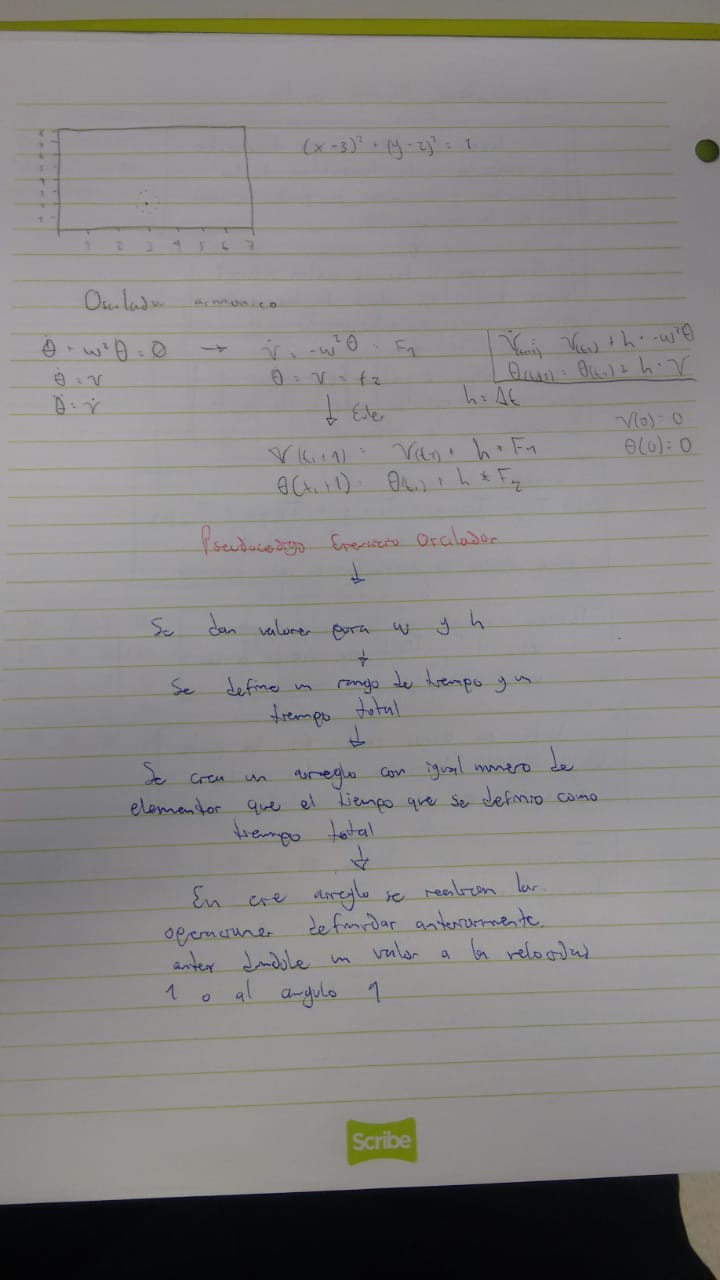 (x-3)² + (y-2)² = 1
1 2 3 4 5 6 7
Oscilador armonico
θ̈ + w²θ = 0 → v̇ = -w²θ = F1
θ̇ = v θ̇ = v = f2
θ̈ = v̇
V(ti+1) = V(ti) + h · -w²θ
θ(ti+1) = θ(ti) + h · V
h = Δt
↓ Euler
v(0) = 0
θ(0) = 0
V(ti+1) = V(ti) + h * F1
θ(ti+1) = θ(ti) + h * F2
Pseudocodigo Ejercicio Oscilador
↓
Se dan valores para w y h
↓
Se define un rango de tiempo y un
tiempo total
↓
Se crea un arreglo con igual numero de
elementos que el tiempo que se definio como
tiempo total
↓
En ese arreglo se realizan las
operaciones definidas anteriormente.
antes dandole un valor a la velocidad
1 o al angulo 1
Scribe